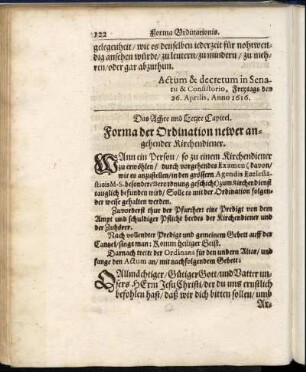 122 Forma Ordinationis.
gelegenheit / wie es denselben jederzeit für nohtwen-
dig ansehen würde / zu leutern / zu mindern / zu meh-
ren / oder gar abzuthun.
Actum & decretum in Sena-
tu & Consistorio, Freytags den
26. Aprilis, Anno 1616.
Das Achte und Letzte Capitel.
Forma der Ordination newer an-
gehender Kirchendiener.
WAnn ein Person / so zu einem Kirchendiener
zu erwöhlen / durch vorgehendes Examen (davon /
wie es anzustellen / in den grössern Agendis Ecclesia-
besondere Verordnung geschicht) zum Kirchendienst
tauglich befunden wird / Solle es mit der Ordination folgen-
der weise gehalten werden.
Zuvorderst thut der Pfarrherr eine Predigt von dem
Ampt und schuldiger Pflicht beydes der Kirchendiener und
der Zuhörer.
Nach vollendter Predigt und gemeinem Gebett auff der
Cantzel / singt man: Komm heiliger Geist.
Darnach trette der Ordinans für den undern Altar / und
fange den Actum an / mit nachfolgendem Gebett:
O Allmächtiger / Gütiger Gott / und Vatter un-
sers HErrn Jesu Christi / der du uns ernstlich
befohlen hast / daß wir dich bitten sollen / umb
Ar-